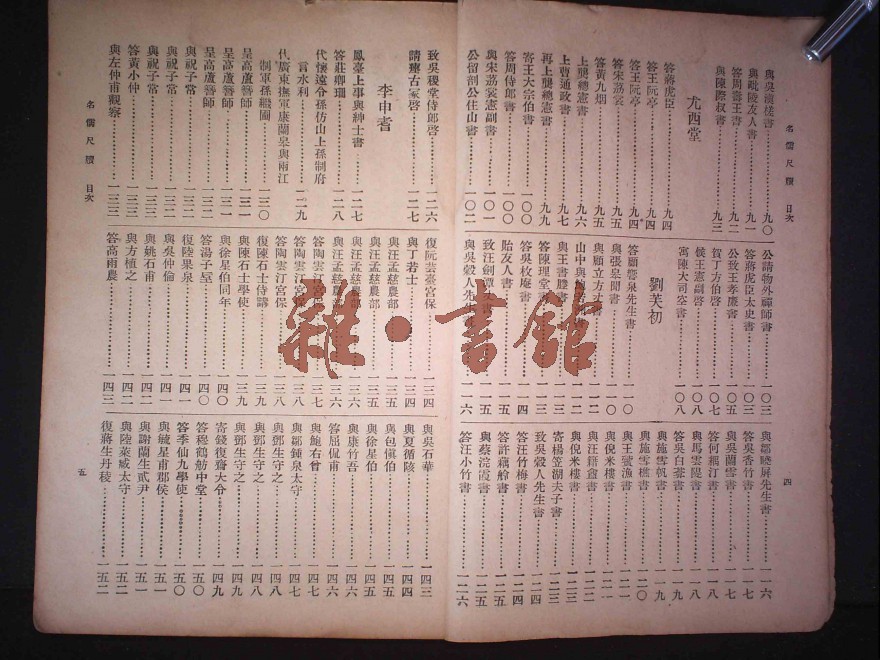 名儒尺牘 目次
四
與吳漢槎書⋯⋯九〇
與毗陵友人書⋯⋯九一
答周壽王書⋯⋯九二
與陳際叔書⋯⋯九三
尤西堂
答蔣虎臣⋯⋯九四
答王阮亭⋯⋯九四
答王阮亭⋯⋯九四
答宋荔裳⋯⋯九五
答黃九烟⋯⋯九五
上龔總憲書⋯⋯九六
上曹通政書⋯⋯九七
再上龔總憲書⋯⋯九九
寄王大宗伯書⋯⋯一〇〇
答周侍郎書⋯⋯一〇〇
與宋荔裳憲副書⋯⋯一〇一
公留剖公住山書⋯⋯一〇二
公請物外禪師書⋯⋯一〇三
答蔣虎臣太史書⋯⋯一〇三
公致王孝廉書⋯⋯一〇五
賀丁方伯啓⋯⋯一〇七
候王憲副啓⋯⋯一〇八
寓陳大司空書⋯⋯一〇八
劉芙初
答顧響泉先生書⋯⋯一一〇
與張皋聞書
與顧立方
山中與
與王書滕書⋯⋯一一三
答陳理堂書⋯⋯一一三
答吳枚庵書⋯⋯一一四
貽友人書⋯⋯一一五
致汪劍潭⋯⋯一一五
與吳穀人先生書⋯⋯一一六
與鄒曉屏先生書⋯⋯一一六
與吳香竹書⋯⋯一一七
與吳蘭雪書⋯⋯一一七
答何耦汀書⋯⋯一一八
與馬雲隄書⋯⋯一一八
答吳白葊書⋯⋯一一九
與施雪帆書⋯⋯一一九
與施雪樵書⋯⋯一二〇
與王虢漁書⋯⋯一二一
與倪米樓書⋯⋯一二一
與汪籍盦書⋯⋯一二二
與倪米樓書⋯⋯一二三
寄楊笠湖夫子書⋯⋯一二三
致吳穀人先生書⋯⋯一二四
答汪竹海書⋯⋯一二四
答許藕舲書⋯⋯一二五
與蔡浣霞書⋯⋯一二五
答汪小竹書⋯⋯一二六
致吳稷堂侍郎啓⋯⋯一二六
請瘞古冢啓⋯⋯一二七
李申耆
鳳臺上事與紳士書⋯⋯一二七
答莊卿珊⋯⋯一二八
代懷遠令孫仿山上孫制府
言水利⋯⋯一二九
代廣東撫軍康蘭皋與兩江
制軍孫繼圃⋯⋯一三〇
呈高盧簪師⋯⋯一三一
呈高盧簪師⋯⋯一三一
呈高盧簪師⋯⋯一三二
與祝子常⋯⋯一三二
與祝子常⋯⋯一三二
與祝子常⋯⋯一三二
答黃小仲⋯⋯一三三
與左仲甫觀察⋯⋯一三三
復阮芸臺宮保⋯⋯一三四
與丁若士⋯⋯一三四
與汪孟慈農部⋯⋯一三五
與汪孟慈農部⋯⋯一三五
與汪孟慈農部⋯⋯一三六
與汪孟慈農部⋯⋯一三六
答陶雲汀⋯⋯一三七
答陶雲汀宮保⋯⋯一三八
答陶雲汀宮保⋯⋯一三八
復陳石士侍講⋯⋯一三九
與陳石士學使⋯⋯一三九
與徐星伯同年⋯⋯一四〇
答湯子垕⋯⋯一四〇
復陸果泉⋯⋯一四一
與吳仲倫⋯⋯一四一
與姚石甫⋯⋯一四二
與方植之⋯⋯一四二
答高雨農⋯⋯一四三
與吳石華⋯⋯一四三
與夏循陔⋯⋯一四四
與包慎伯⋯⋯一四五
與徐星伯⋯⋯一四五
與康竹吾⋯⋯一四六
答屈侃甫⋯⋯一四六
與鮑右曾⋯⋯一四七
與鄒鍾泉太守⋯⋯一四七
與鄧生守之⋯⋯一四八
與鄧生守之⋯⋯一四八
與鄧生守之⋯⋯一四九
寄錢復齋大令⋯⋯一四九
答穆鶴舫中堂⋯⋯一五〇
答季仙九學使⋯⋯一五〇
與毓星甫郡侯⋯⋯一五一
與謝蘭生貳尹⋯⋯一五一
與陸萊臧太守⋯⋯一五二
復蔣生丹稜⋯⋯一五二
名儒尺牘 目次
五
雜·書館